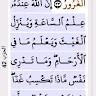 ٱلْغَرُورُ ٣٣ إِنَّ ٱللَّهَ عِندَهُۥ
عِلْمُ ٱلسَّاعَةِ وَيُنَزِّلُ
ٱلْغَيْثَ وَيَعْلَمُ مَا فِى
ٱلْأَرْحَامِ ۖ وَمَا تَدْرِى
نَفْسٌ مَّاذَا تَكْسِبُ غَدًا ۖ
الحزب 42